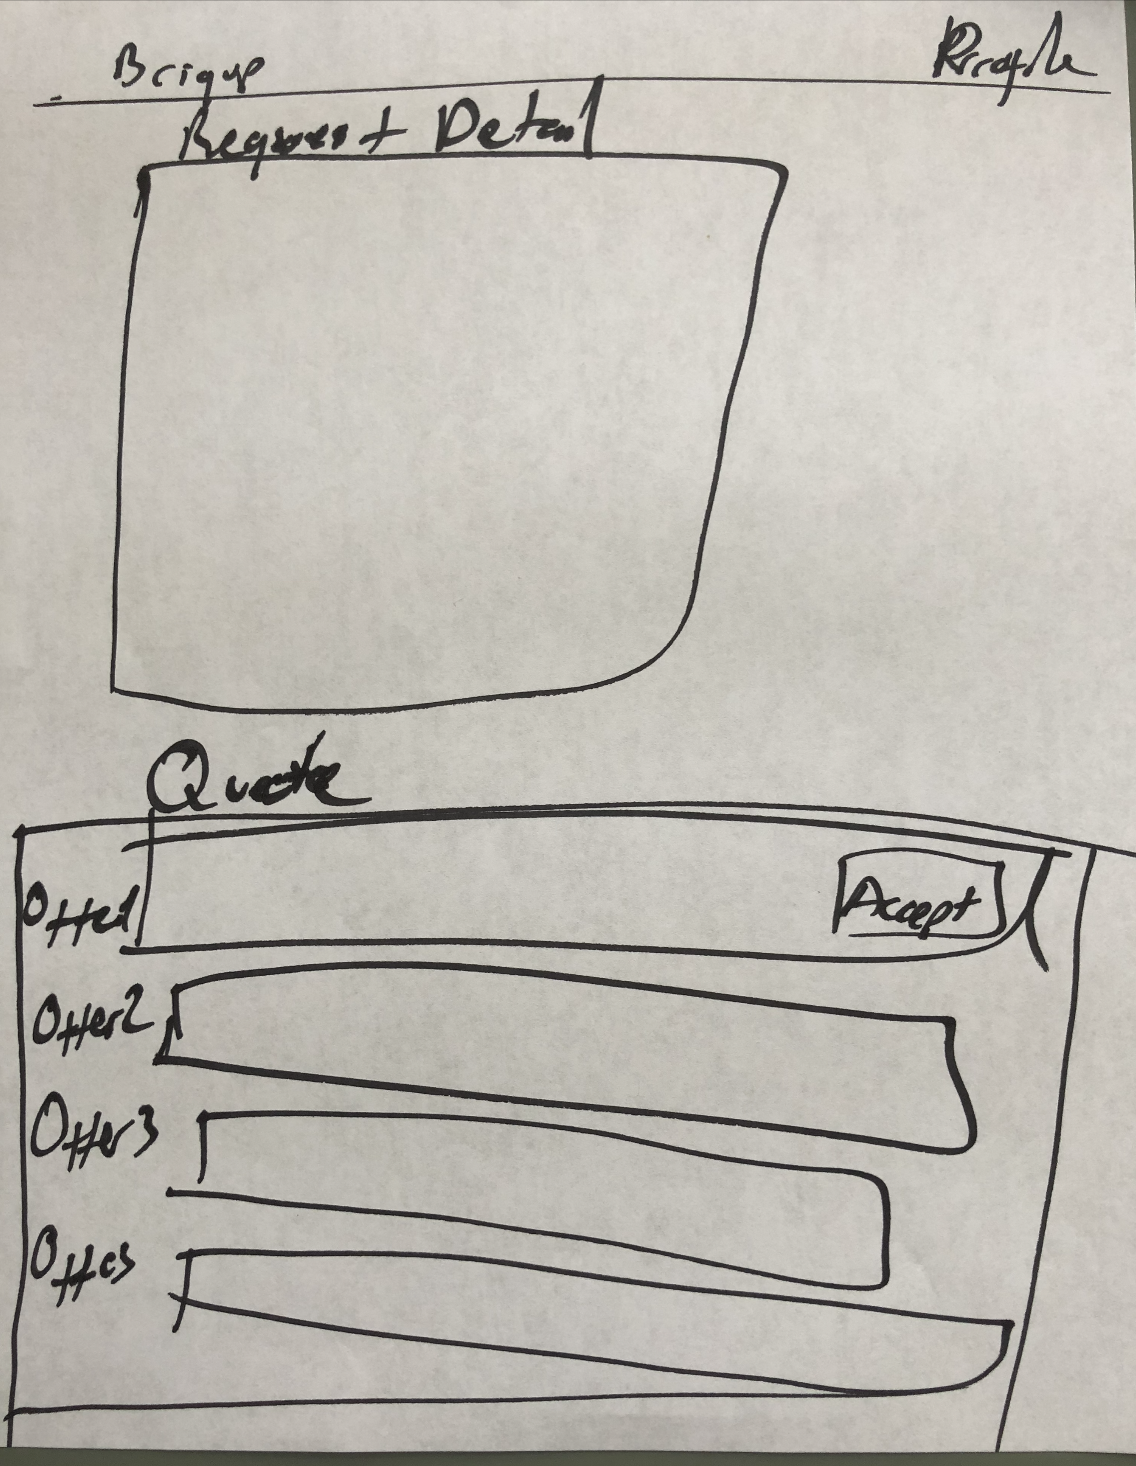 Briqup Profile
Request Detail
Quote
Offer1
Accept
Offer2
Offer3